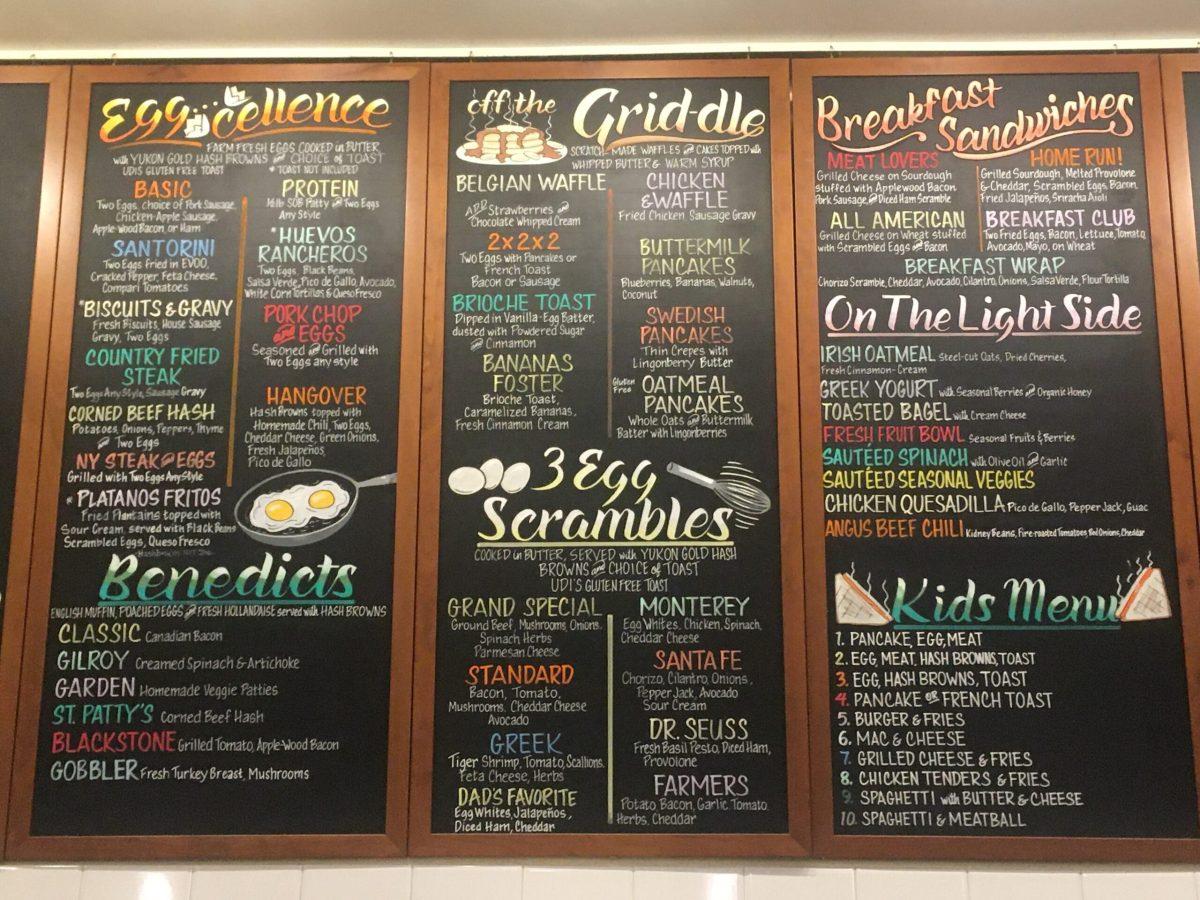 Egg...cellence
FARM FRESH EGGS COOKED in BUTTER,
with YUKON GOLD HASH BROWNS and CHOICE of TOAST
UDIS GLUTEN FREE TOAST
* TOAST NOT INCLUDED
BASIC
Two Eggs, choice of Pork Sausage,
Chicken-Apple Sausage,
Apple-wood Bacon, or Ham
SANTORINI
Two Eggs Fried in EVOO,
Cracked Pepper, Feta Cheese,
Compari Tomatoes
*BISCUITS & GRAVY
Fresh Biscuits, House Sausage
Gravy, Two Eggs
COUNTRY FRIED
STEAK
Two Eggs Any Style, Sausage Gravy
CORNED BEEF HASH
Potatoes, Onions, Peppers, Thyme
and Two Eggs
NY STEAK and EGGS
Grilled with Two Eggs Any Style
* PLATANOS FRITOS
Fried Plantains topped with
Sour Cream, served with Black Beans
Scrambled Eggs, Queso Fresco
PROTEIN
SOB Patty and Two Eggs
Any Style
*HUEVOS
RANCHEROS
Two Eggs, Black Beans,
Salsa Verde, Pico de Gallo, Avocado,
White Corn Tortillas & Queso Fresco
PORK CHOP
and EGGS
Seasoned and Grilled with
Two Eggs any style
HANGOVER
Hash Browns topped with
Homemade Chili, Two Eggs,
Cheddar Cheese, Green Onions,
Fresh Jalapeños,
Pico de Gallo
Benedicts
ENGLISH MUFFIN, POACHED EGGS and FRESH HOLLANDAISE served with HASH BROWNS
CLASSIC Canadian Bacon
GILROY Creamed Spinach & Artichoke
GARDEN Homemade Veggie Patties
ST. PATTY'S Corned Beef Hash
BLACKSTONE Grilled Tomato, Apple-Wood Bacon
GOBBLER Fresh Turkey Breast, Mushrooms
off the Grid-dle
SCRATCH-MADE WAFFLES and CAKES TOPPED with
WHIPPED BUTTER & WARM SYRUP
BELGIAN WAFFLE
ADD Strawberries and
Chocolate Whipped Cream
2x2x2
Two Eggs with Pancakes or
French Toast
Bacon or Sausage
BRIOCHE TOAST
Dipped in Vanilla-Egg Batter,
dusted with Powdered Sugar
and Cinnamon
BANANAS
FOSTER
Brioche Toast,
Caramelized Bananas,
Fresh Cinnamon Cream
CHICKEN
& WAFFLE
Fried Chicken Sausage Gravy
BUTTERMILK
PANCAKES
Blueberries, Bananas, Walnuts,
Coconut
SWEDISH
PANCAKES
Thin Crepes with
Lingonberry Butter
Gluten Free OATMEAL
PANCAKES
Whole Oats and Buttermilk
Batter with Lingonberries
3 Egg
Scrambles
COOKED in BUTTER, SERVED with YUKON GOLD HASH
BROWNS and CHOICE of TOAST
UDI'S GLUTEN FREE TOAST
GRAND SPECIAL
Ground Beef, Mushrooms, Onions,
Spinach, Herbs
Parmesan Cheese
STANDARD
Bacon, Tomato,
Mushrooms, Cheddar Cheese
Avocado
GREEK
Tiger Shrimp, Tomato, Scallions,
Feta Cheese, Herbs
DAD'S FAVORITE
Egg Whites, Jalapeños,
Diced Ham, Cheddar
MONTEREY
Egg Whites, Chicken, Spinach,
Cheddar Cheese
SANTA FE
Chorizo, Cilantro, Onions,
Pepper Jack, Avocado
Sour Cream
DR. SEUSS
Fresh Basil Pesto, Diced Ham,
Provolone
FARMERS
Potato Bacon, Garlic Tomato
Herbs, Cheddar
Breakfast
Sandwiches
MEAT LOVERS
Grilled Cheese on Sourdough
stuffed with Applewood Bacon
Pork Sausage, and Diced Ham Scramble
HOME RUN!
Grilled Sourdough, Melted Provolone
& Cheddar, Scrambled Eggs, Bacon,
Fried Jalapeños, Sriracha Aioli
ALL AMERICAN
Grilled Cheese on Wheat stuffed
with Scrambled Eggs and Bacon
BREAKFAST CLUB
Two Fried Eggs, Bacon, Lettuce, Tomato,
Avocado, Mayo, on Wheat
BREAKFAST WRAP
Chorizo Scramble, Cheddar, Avocado, Cilantro, Onions, Salsa Verde, Flour Tortilla
On The Light Side
IRISH OATMEAL Steel-cut Oats, Dried Cherries,
Fresh Cinnamon-Cream
GREEK YOGURT with Seasonal Berries and Organic Honey
TOASTED BAGEL with Cream Cheese
FRESH FRUIT BOWL Seasonal Fruits & Berries
SAUTÉED SPINACH with Olive Oil and Garlic
SAUTÉED SEASONAL VEGGIES
CHICKEN QUESADILLA Pico de Gallo, Pepper Jack, Guac
ANGUS BEEF CHILI Kidney Beans, Fire-roasted Tomatoes, Red Onions, Cheddar
Kids Menu
1. PANCAKE, EGG, MEAT
2. EGG, MEAT, HASH BROWNS, TOAST
3. EGG, HASH BROWNS, TOAST
4. PANCAKE or FRENCH TOAST
5. BURGER & FRIES
6. MAC & CHEESE
7. GRILLED CHEESE & FRIES
8. CHICKEN TENDERS & FRIES
9. SPAGHETTI with BUTTER & CHEESE
10. SPAGHETTI & MEATBALL